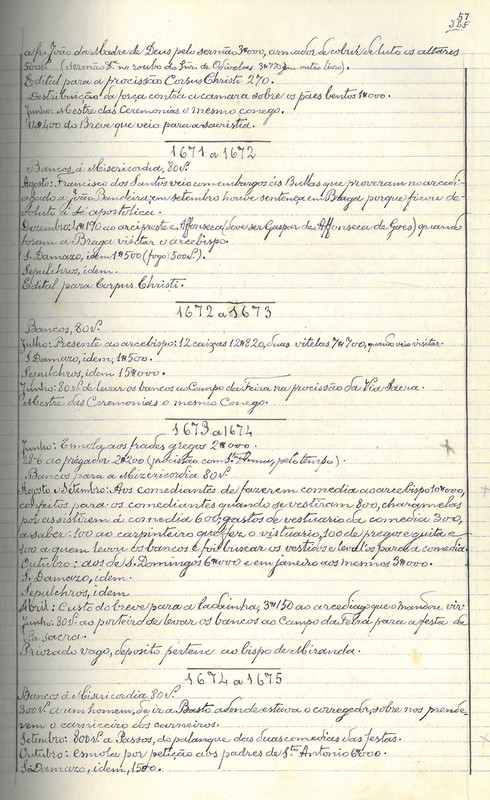 57
a fr. João da Madre de Deus pelo sermão 3#000, armador de cobrir de luto os altares
500rs (sermão do roubo do Snr. de Odivelas 3#770 em outro livro).
Edital para a procissão Corpus Christi 270.
Destribuição da força contra a camara sobre os pães bentos 1#000.
Junho: Mestre das Ceremonias o mesmo conego.
12#400 do Breve que veio para a sacristia.
1671 a 1672
Bancos, á Misericordia, 80rs.
Agosto: Francisco dos Santos veio com embargos ás Bullas que proveram no arcedi-
agado a João Bandeira; em setembro houve sentença em Braga porque ficou de-
voluto á sé apostolica.
Dezembro: 1#190 ao arcipreste e Affonseca (deve ser Gaspar de Affonseca de Goes) quando
foram a Braga visitar o arcebispo.
S. Damazo, idem 1#500 (fogo 500rs.).
Sepulchros, idem.
Edital para Corpus Christi.
1672 a 1673
Bancos, 80rs.
Julho: Presente ao arcebispo: 12 caixas 12#820, duas vitelas 7#700, quando veio visitar.
S. Damazo, idem, 1#500.
Sepulchros, idem 15#000.
Junho: 80rs. de levar os bancos ao Campo da Feira na procissão da Via Sacra.
Mestre das Ceremonias o mesmo Conego.
1673 a 1674
Junho: Esmola, aos frades gregos 2#000.
28-6 ao prégador 2#200 (procissão com Sta. Anna, pelo tempo).
Bancos para a Mizericordia 80rs.
Agosto e Setembro: Aos comediantes de fazerem comedia ao arcebispo 10#000,
confeitos para os comediantes quando se vestiram 800, charamelas
por assistirem á comedia 600, gastos de vestuario da comedia 300,
a saber: 100 ao carpinteiro que fez o vistuario, 100 de prégos e guita e
100 a quem levou os bancos e foi buscar os vestidos e leval-os para a comedia.
Outubro: aos de S. Domingos 6#000 e em janeiro aos mesmos 3#000.
S. Damazo, idem.
Sepulchros, idem
Abril: Custo do breve para a ladainha, 3#150 ao arcediago que o mandou vir.
Junho: 80rs. ao porteiro de levar os bancos ao Campo da Feira para a festa da
Via sacra.
Priorado vago, deposito pertence ao bispo de Miranda.
1674 a 1675
Bancos á Misericordia 80rs.
300rs. a um homem, de ir a Basto adonde estava o corregedor, sobre nos prende-
rem o carniceiro dos carneiros.
Setembro: 800rs. a Passos, do palanque das duas comedias das festas.
Outubro: esmola por petição aos padres de Sto. Antonio 6#000.
S. Damazo, idem, 1500.